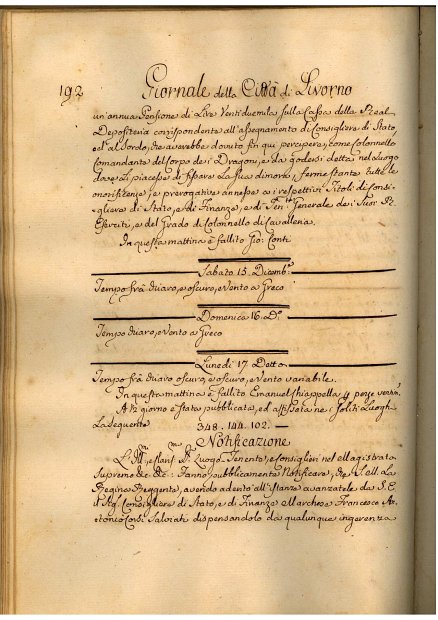 192 Giornale della Città di Livorno
un'annua Pensione di Lire Ventiduemila sulla Cassa della Real
Depositeria corrispondente all'assegnamento di Consigliere di Stato,
ed al Soldo, che averebbe dovuto fin qui percepere, come Colonnello
Comandante del Corpo dei Dragoni, e da godersi detta nel Luogo
dove Li piacesse di fissare La sua dimora, ferme stante tutte le
onorificenze, e prerogative annesse ai respettivi Titoli di Consi-
gliere di Stato, e di Finanze, e di Ten.te Generale de i Suoi R.
Eserciti, e del Grado di Colonnello di Cavalleria.
In questa mattina è fallito Gio: Conti
Sabato 15. Dicemb.e
Tempo frà chiaro, e oscuro, e Vento a Greco
Domenica 16. D.o
Tempo chiaro, e Vento a Greco
Lunedì 17 Detto
Tempo frà chiaro oscuro, e oscuro, e Vento variabile.
In questa mattina è fallito Emanuel Chiappella 4
A 1/2 giorno è stata pubblicata, ed affissata ne i soliti Luoghi
La seguente 348. 144. 102. —
Notificazione
Luogo Tenente, e Consiglieri nel Magistrato
Supremo &c &c: Fanno pubblicamente Notificare, che S. M. La
Regina Reggente, avendo aderito all'Istanze avanzatele da S. E.
il Sig. Consigliere di Stato, e di Finanze Marchese Francesco An-
tonio Cons. Salviati dispensandolo da qualunque ingerenza